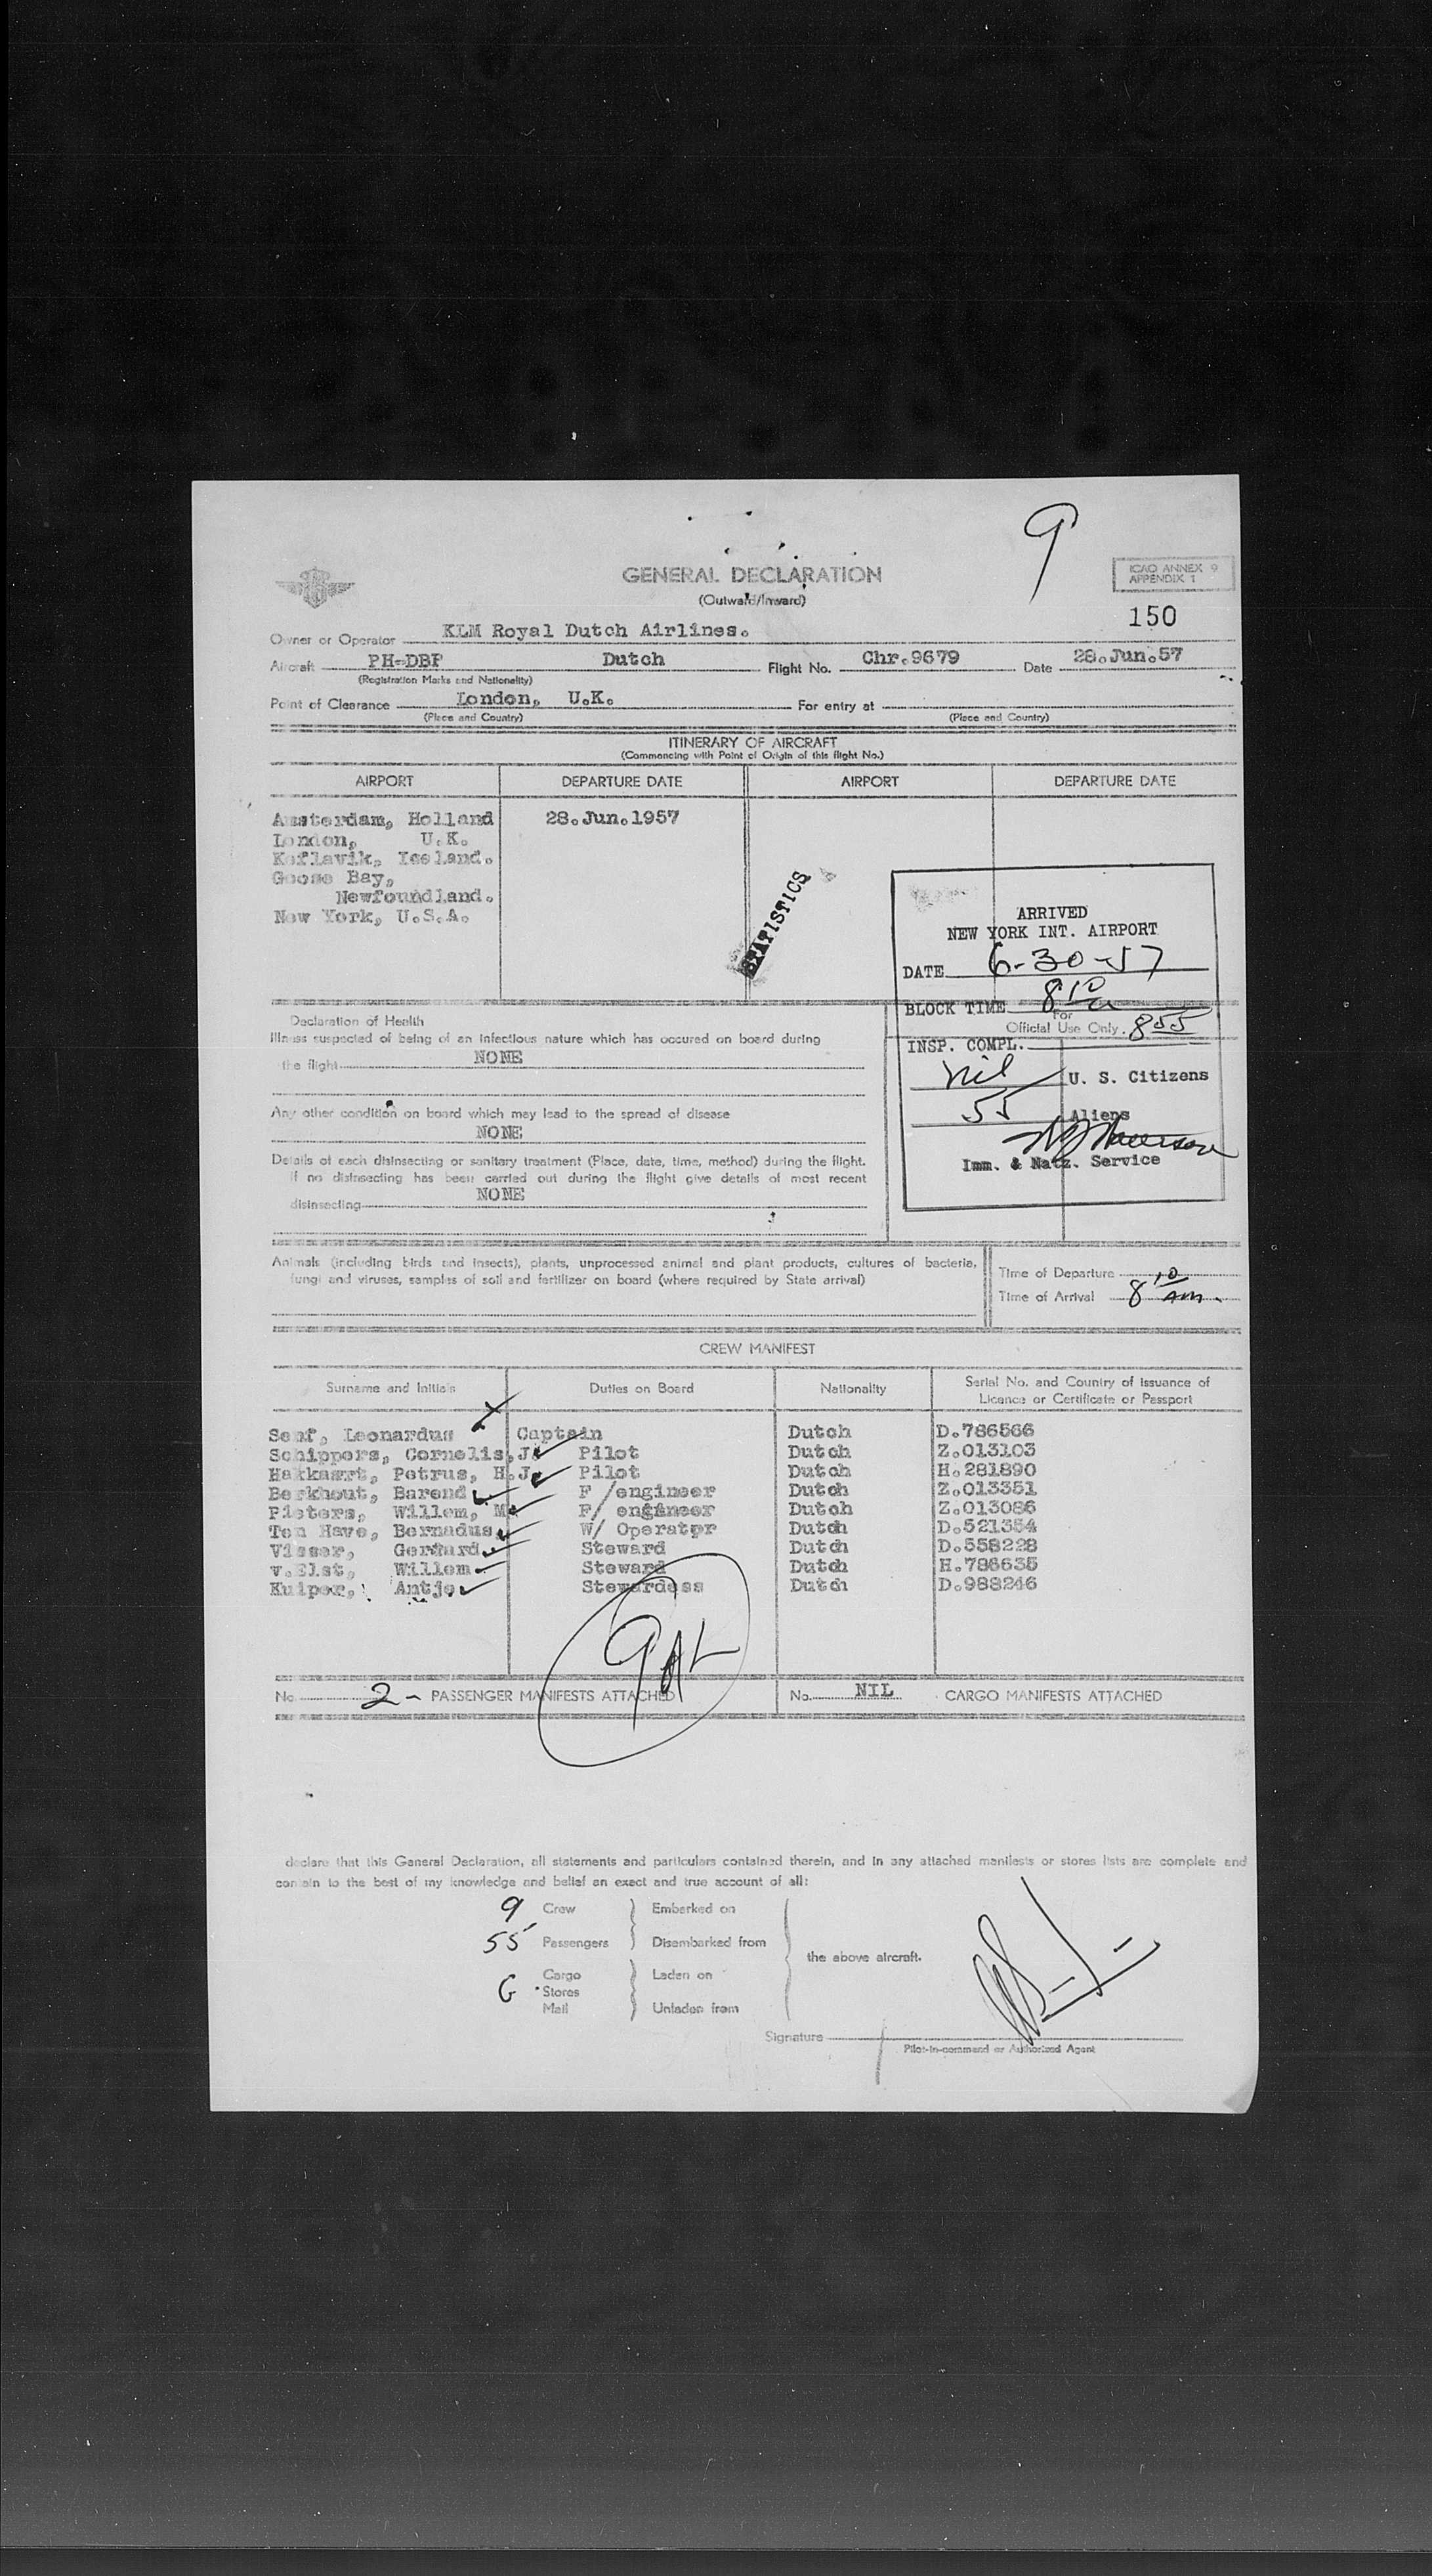 9
GENERAL DECLARATION
(Outward/Inward)
ICAO ANNEX 9
APPENDIX 1
150
Owner or Operator KLM Royal Dutch Airlines.
Aircraft PH-DBF Dutch Flight No. Chr.9679 Date 28.Jun.57
(Registration Marks and Nationality)
Point of Clearance London, U.K. For entry at
(Place and Country) (Place and Country)
ITINERARY OF AIRCRAFT
(Commencing with Point of Origin of this flight No.)
AIRPORT DEPARTURE DATE AIRPORT DEPARTURE DATE
Amsterdam, Holland 28.Jun.1957
London, U.K.
Keflavik, Iceland.
Goose Bay,
Newfoundland.
New York, U.S.A.
STATISTICS
ARRIVED
NEW YORK INT. AIRPORT
DATE 6-30-57
BLOCK TIME 8 10 a
For
Official Use Only. 8 55
INSP. COMPL.
nil U. S. Citizens
55 Aliens
Imm. & Natz. Service
Declaration of Health
Illness suspected of being of an infectious nature which has occured on board during
the flight NONE
Any other condition on board which may lead to the spread of disease
NONE
Details of each disinsecting or sanitary treatment (Place, date, time, method) during the flight.
If no disinsecting has been carried out during the flight give details of most recent
disinsecting NONE
Animals (including birds and insects), plants, unprocessed animal and plant products, cultures of bacteria,
fungi and viruses, samples of soil and fertilizer on board (where required by State arrival)
Time of Departure
Time of Arrival 8 10 am.
CREW MANIFEST
Surname and Initials Duties on Board Nationality Serial No. and Country of Issuance of
Licence or Certificate or Passport
Senf, Leonardus Captain Dutch D.786566
Schippers, Cornelis,J. Pilot Dutch Z.013103
Hakkaart, Petrus, H.J. Pilot Dutch H.281890
Berkhout, Barend F /engineer Dutch Z.013351
Pieters, Willem, M. F/ engineer Dutch Z.013086
Ten Have, Bernadus W/ Operator Dutch D.521354
Visser, Gerhard Steward Dutch D.558228
v.Elst, Willem Steward Dutch H.786635
Kuiper, Antje Stewardess Dutch D.988246
No. 2 - PASSENGER MANIFESTS ATTACHED No. NIL CARGO MANIFESTS ATTACHED
declare that this General Declaration, all statements and particulars contained therein, and in any attached manifests or stores lists are complete and
contain to the best of my knowledge and belief an exact and true account of all:
9 Crew Embarked on
55 Passengers Disembarked from
the above aircraft.
Cargo Laden on
Stores
Mail Unladen from
Signature
Pilot-in-command or Authorized Agent